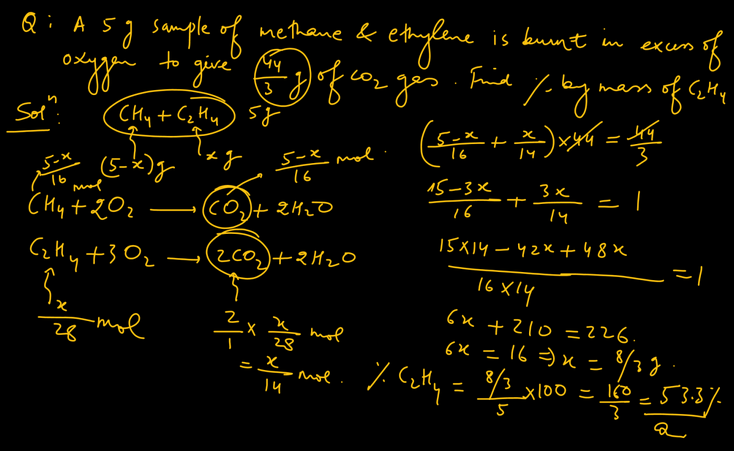 Q: A 5 g sample of methane & ethylene is burnt in excess of
oxygen to give 44/3 g of CO2 gas. Find % by mass of C2H4
Solⁿ: CH4 + C2H4 5g
5-x/16 mol (5-x)g x g 5-x/16 mol.
CH4 + 2O2 → CO2 + 2H2O
C2H4 + 3O2 → 2CO2 + 2H2O
x/28 mol 2/1 × x/28 mol
= x/14 mol.
(5-x/16 + x/14) × 44 = 44/3
15-3x/16 + 3x/14 = 1
15×14 - 42x + 48x / 16×14 = 1
6x + 210 = 226.
6x = 16 ⇒ x = 8/3 g.
% C2H4 = 8/3/5 × 100 = 160/3 = 53.3%